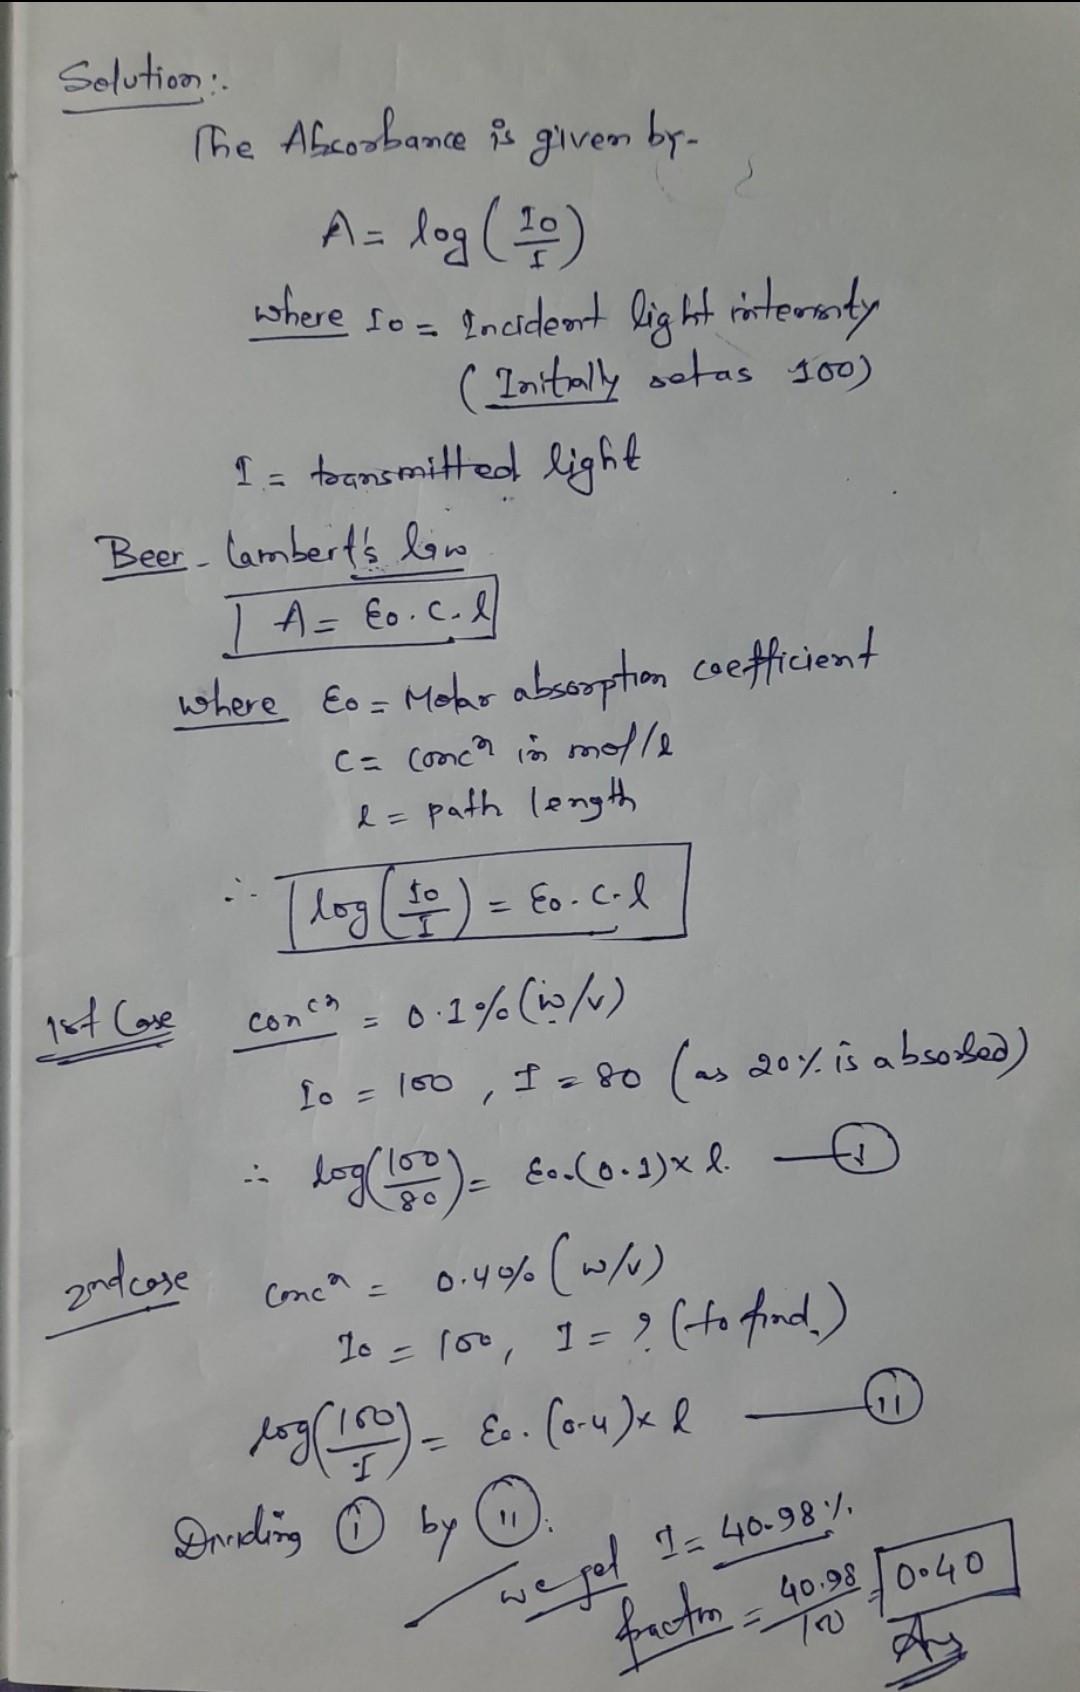 Solution:.
The Absorbance is given by-
A = log (I0/I)
where I0 = Incident light intensity
(Initially set as 100)
I = transmitted light
Beer-Lambert's law
A = Ɛ0. C. l
where Ɛ0 = Molar absorption coefficient
C = concn in mol/l
l = path length
∴ log(I0/I) = Ɛ0. C. l
1st Case concn = 0.1% (w/v)
I0 = 100, I = 80 (as 20% is absorbed)
∴ log(100/80) = Ɛ0.(0.1)× l. — (I)
2nd case concn = 0.4% (w/v)
I0 = 100, I = ? (to find.)
log(100/I) = Ɛ0. (0.4)× l — (ii)
Dividing (i) by (ii):
we get I = 40.98%.
fraction = 40.98/100 = 0.40
Ans